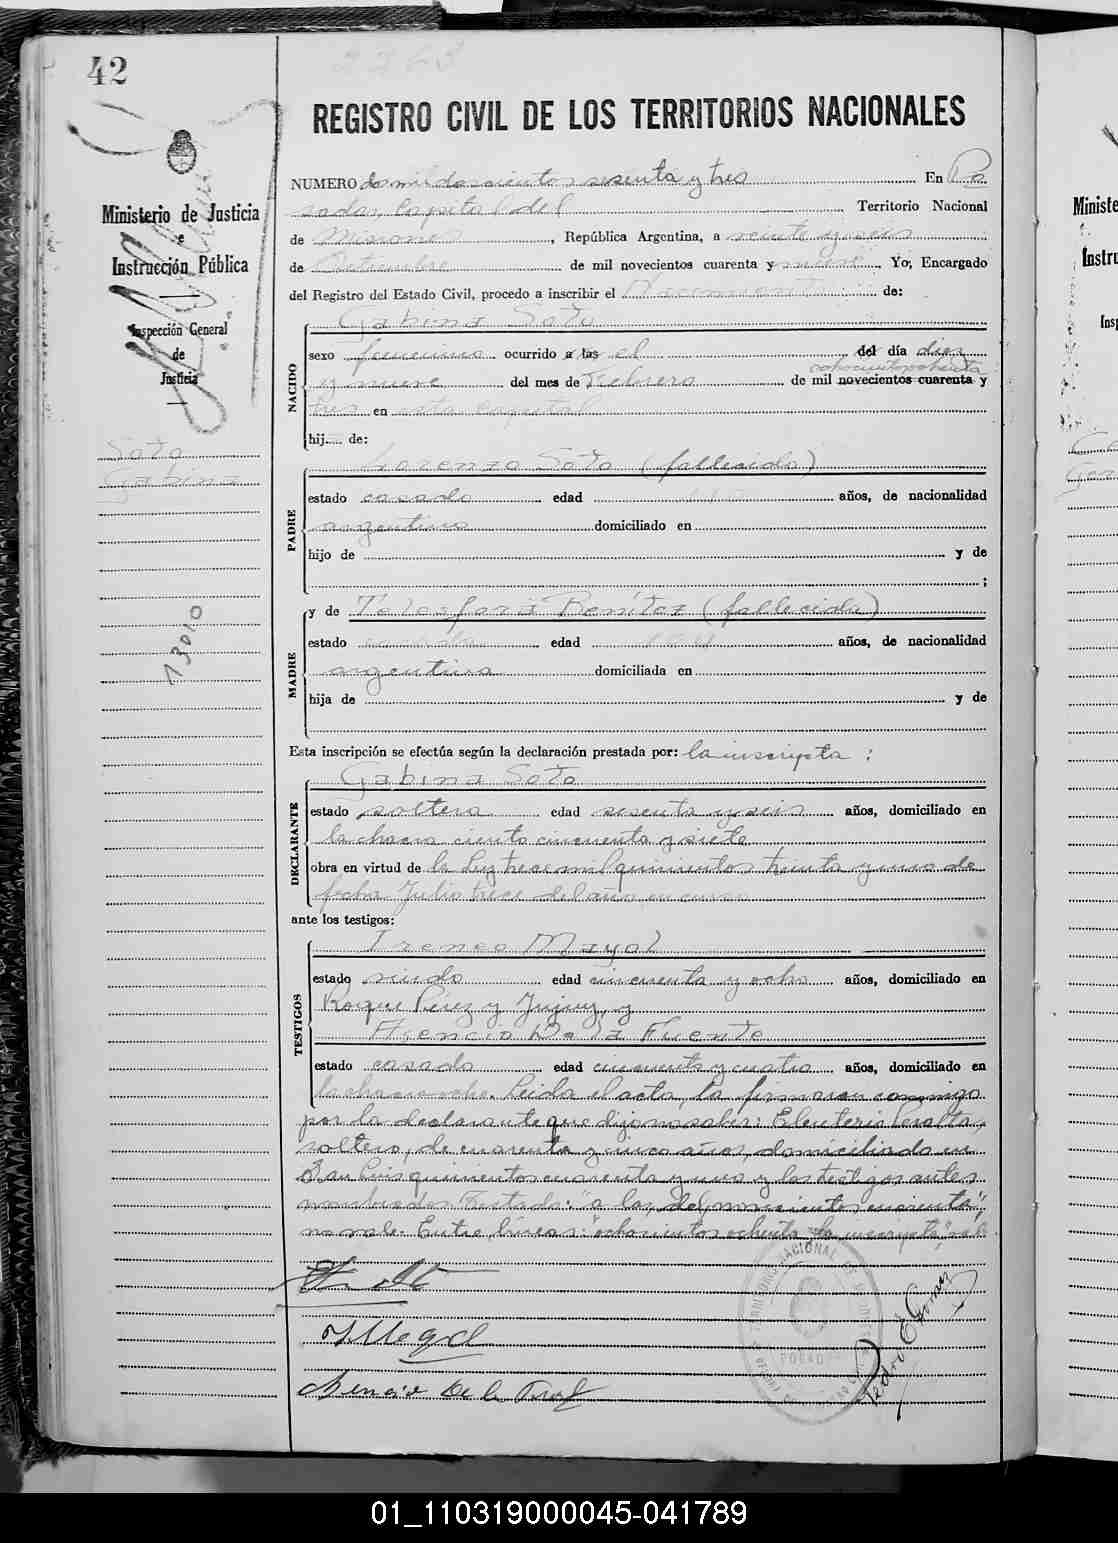 42
2263
REGISTRO CIVIL DE LOS TERRITORIOS NACIONALES
Ministerio de Justicia
e
Instrucción Pública
Inspección General
de
Justicia
Soto
Gabina
13010
NUMERO dos mil doscientos sesenta y tres En Po
sadas, Capital del Territorio Nacional
de Misiones, República Argentina, a veinte y seis
de de mil novecientos cuarenta y nueve, Yo, Encargado
del Registro del Estado Civil, procedo a inscribir el Nacimiento de:
NACIDO
Gabina Soto
sexo femenino ocurrido a las el del día diez
ochocientos ochenta
y nueve del mes de Febrero de mil novecientos cuarenta y
tres en esta capital
hij de:
PADRE
Lorenzo Soto (fallecido)
estado casado edad años, de nacionalidad
argentino domiciliado en
hijo de y de
;
MADRE
y de Telesfora Benítez (fallecida)
estado casada edad años, de nacionalidad
argentina domiciliada en
hija de y de
Esta inscripción se efectúa según la declaración prestada por: la inscripta :
DECLARANTE
Gabina Soto
estado soltera edad sesenta y seis años, domiciliado en
la chacra ciento cincuenta y siete
obra en virtud de la Ley trece mil quinientos treinta y uno de
fecha Julio trece del año en curso
ante los testigos:
TESTIGOS
Ireneo Mayol
estado viudo edad cincuenta y ocho años, domiciliado en
Roque Pérez y Jujuy, y
Asencio De la Fuente
estado casado edad cincuenta y cuatro años, domiciliado en
la chacra ocho. Leída el acta, la firmaron conmigo
por la declarante que dijo no saber: Eleuterio Peralta,
soltero, de cuarenta y cinco años, domiciliado en
San Luis quinientos cuarenta y uno y los testigos antes
nombrados. Testado: "a las, del, novecientos cuarenta",
no vale. Entre líneas: "ochocientos ochenta, la inscripta," vale
Pedro E Gomez
01_110319000045-041789